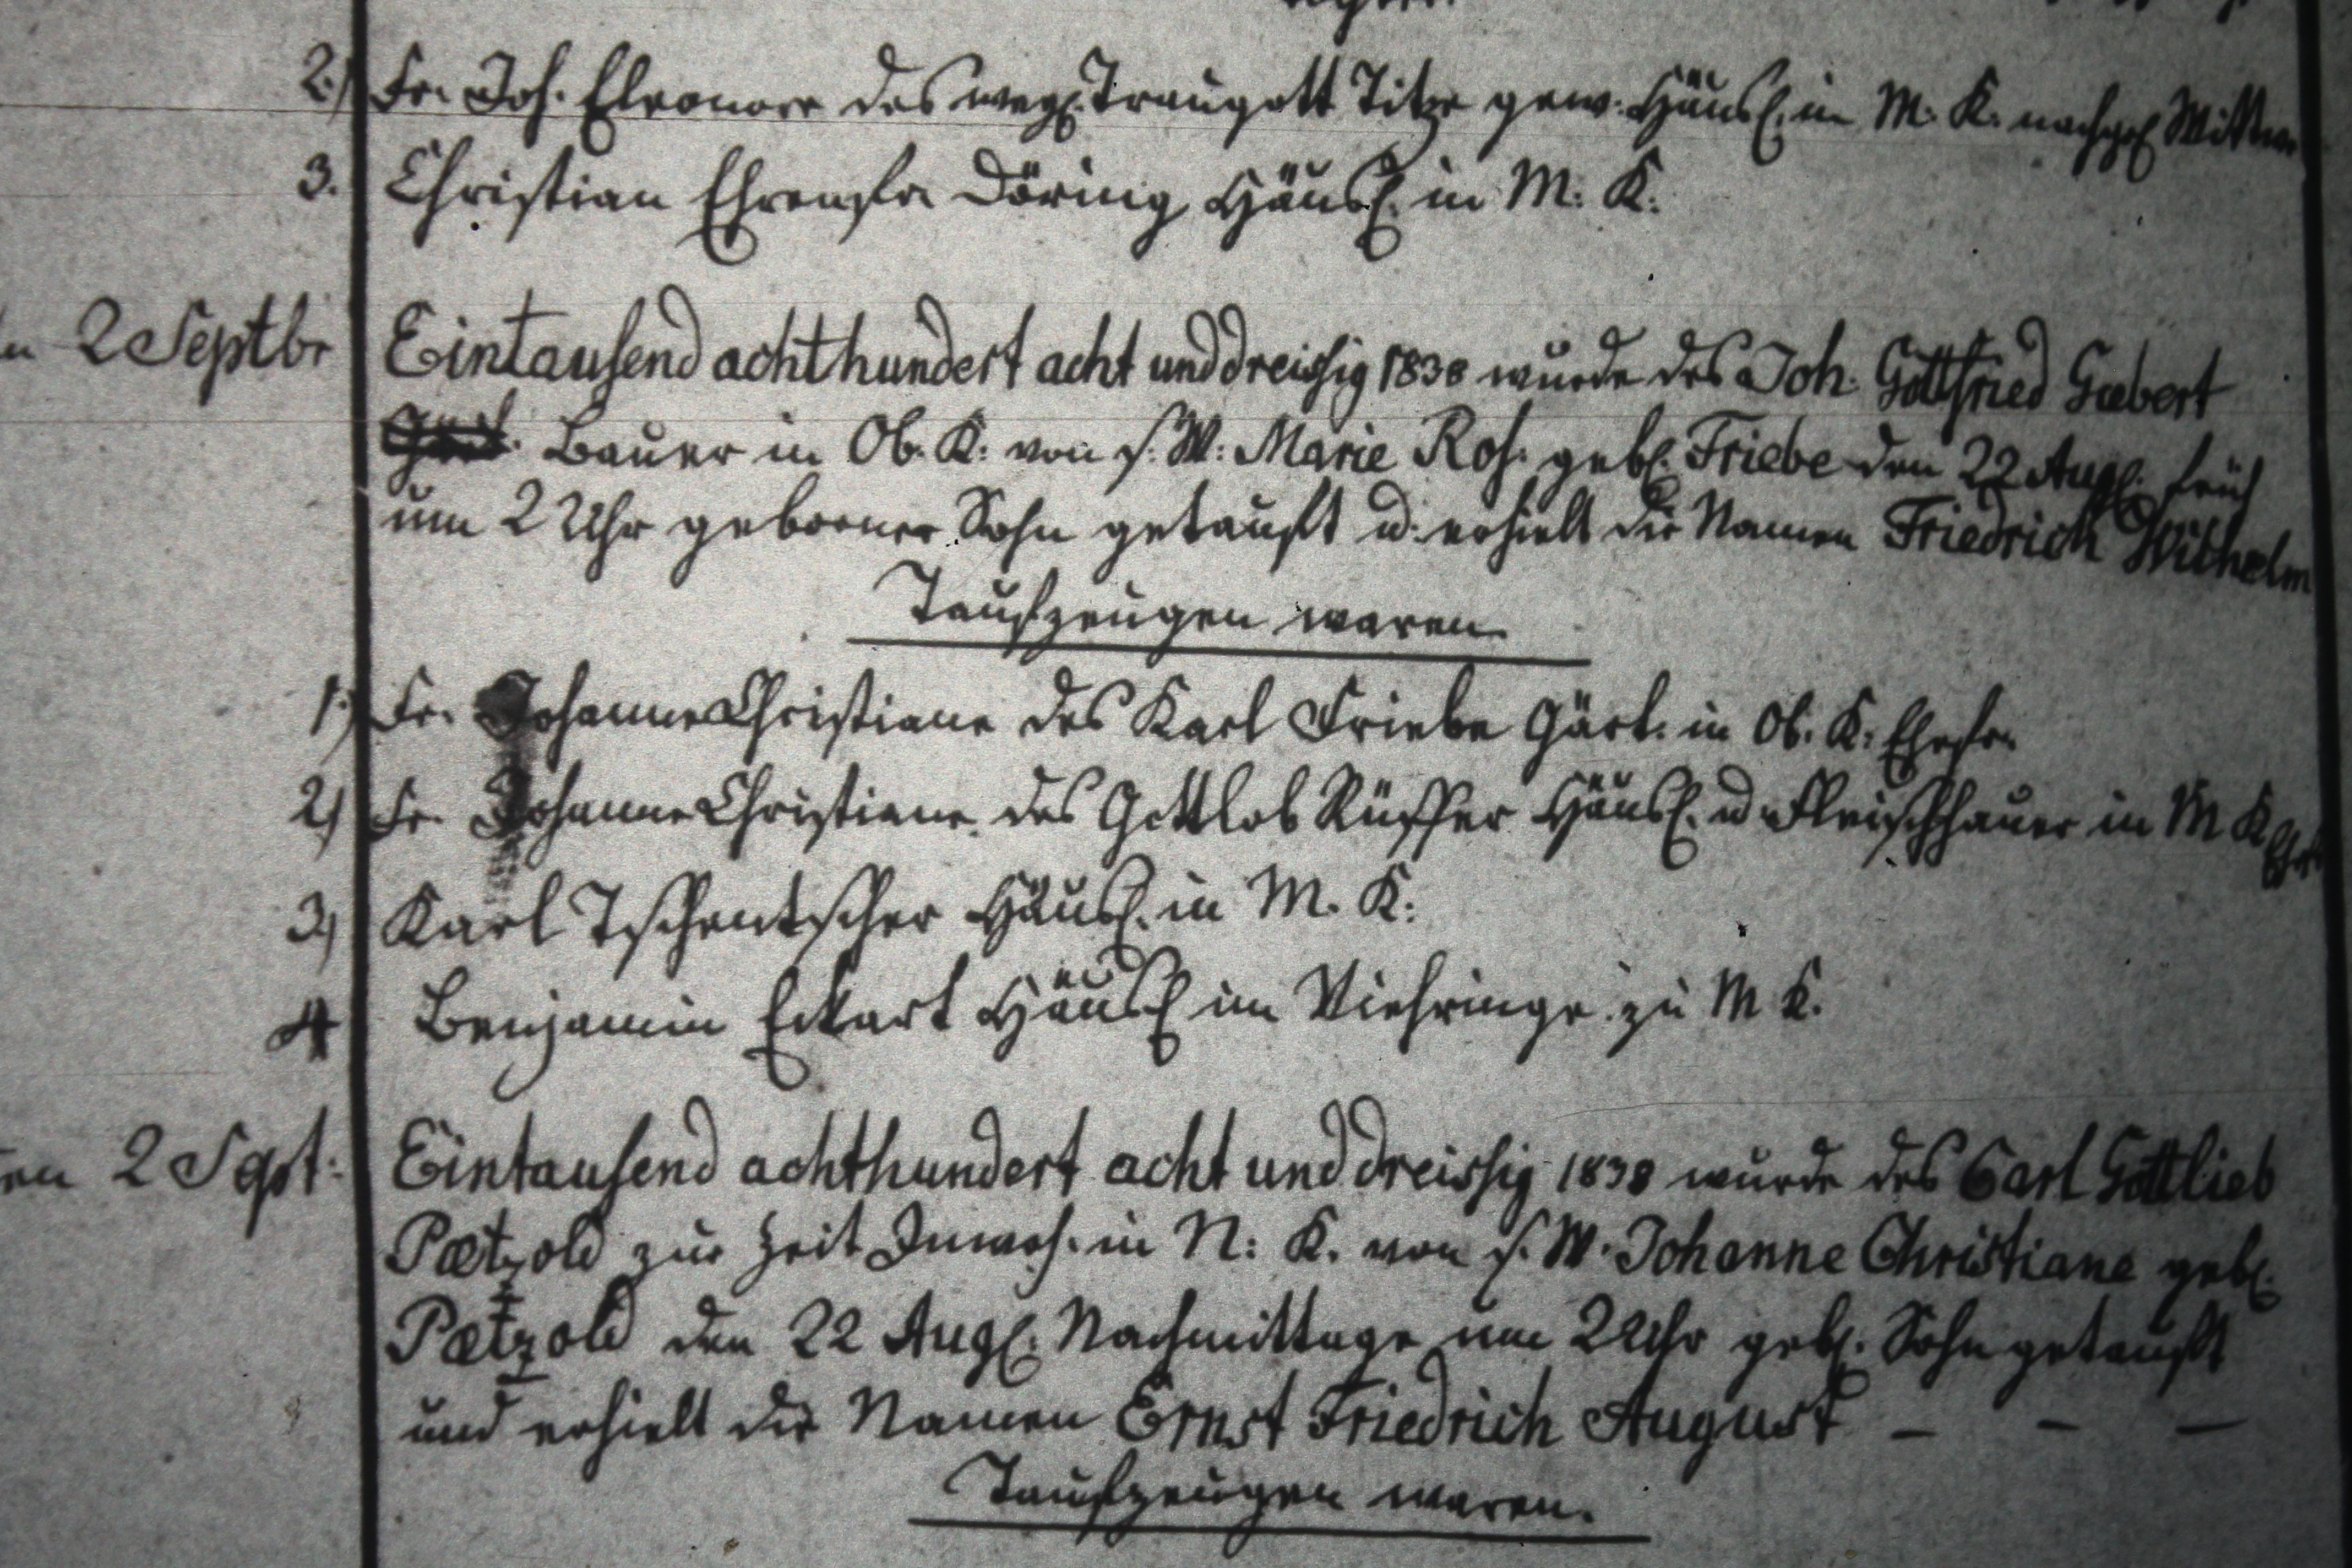 2.) Fr. Joh. Eleonore des weyl. Traugott Titze gew. Häusl. in M. K. nachgel. Wittwe
3. Christian Ehrenfr. Döring Häusl. in M: K:
2 Septbr Eintausend achthundert acht und dreissig 1838 wurde des Joh. Gottfried Gaebert
Bauer in Ob. K: von s. W: Marie Ros. gebl. Friebe den 22 Augl. früh
um 2 Uhr geborner Sohn getauft u. erhielt die Namen Friedrich Wilhelm
Taufzeugen waren
1.) Fr. Johanne Christiane des Karl Friebe Gärt. in Ob. K: Ehefr.
2) Fr. Johanne Christiane des Gottlob Rüffer Häusl. u Fleischhauer in M K
3) Karl Tschentscher Häusl. in M. K:
4 Benjamin Eckart Häusl im Viehringe zu M K.
2 Sept: Eintausend achthundert acht und dreissig 1838 wurde des Carl Gottlieb
Pætzold zur Zeit Inwoh. in N: K. von s. W. Johanne Christiane gebl.
Pætzold den 22 Augl. Nachmittage um 2 Uhr gebl. Sohn getauft
und erhielt die Namen Ernst Friedrich August – – –
Taufzeugen waren.